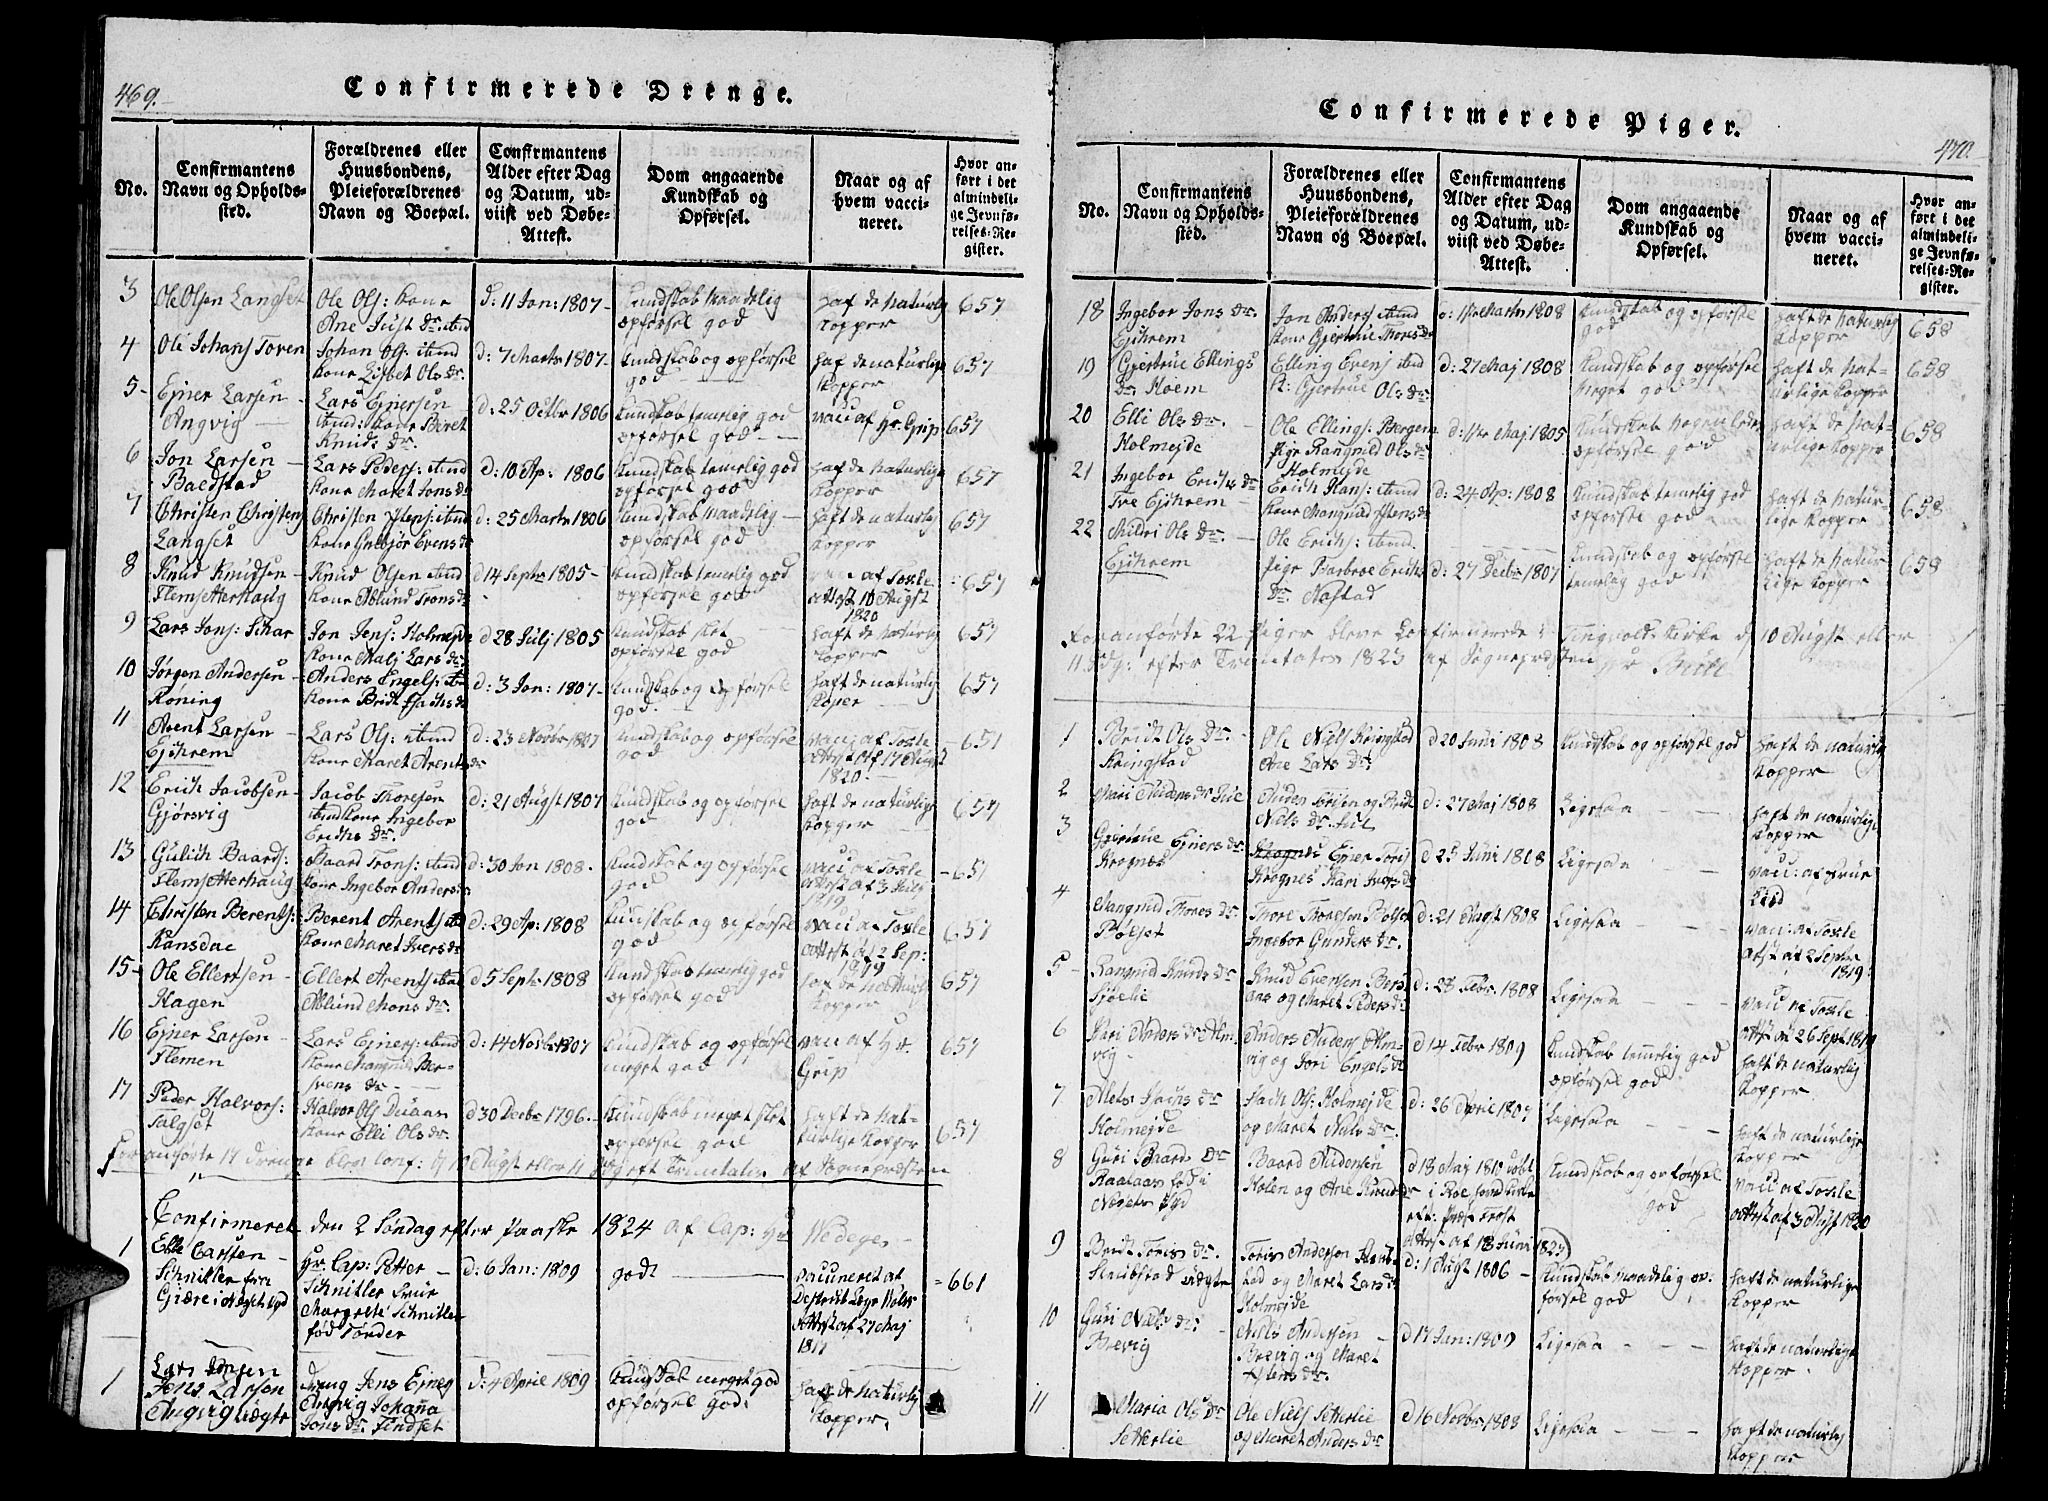 469.
Confirmerede Drenge.
No.
Confirmantens Navn og Opholdssted.
Forældrenes eller Huusbondens, Pleieforældrenes Navn og Boepæl.
Confirmantens Alder efter Dag og Datum, udviist ved Døbe-Attest.
Dom angaaende Kundskab og Opførsel.
Naar og af hvem vaccineret.
Hvor anført i det almindelige Jevnførelses-Register.
3 Ole Olsen Langset
Ole Ols: kone
Ane Just Dr:
d: 11 Jan: 1807
Kundskab maadelig
opførsel god
haf de naturlig
kopper
657
4 Ole Johans Toven
Johan Ols:
kone Lisbet Ols Dr:
d: 7 Marts 1807
Kundskab og opførsel
god
haf de naturlige
kopper
657
5 Ejner Larsen
Angvig
Lars Ejnersen
kone Beret
Knuds Dr
d: 25 Octbr 1806
Kundskab temelig god
opførsel god
vacc af Hr Grip
657
6 Jon Larsen
Baldstad
Lars Peders:
kone Maret Jons Dr
d: 10 Ap: 1806
Kundskab temelig god
opførsel god
haf de naturlige
kopper
657
7 Christen Christens
Langset
d: 25 Marts 1806
Kundskab maadelig
opførsel god
haft de naturlig
kopper
657
8 Knud Knudsen
Flemsetterhaug
Knud Olsen
kone Ablund Trons Dr
d 14 Septr 1805
Kundskab temelig god
opførsel god
vacc af Toxle
Attest 10 Augst
1820
657
9 Lars Jons:
Jon Jens: Holmejde
kone Malj Lars Dr:
d 28 Julj 1805
Kundskab slet
opførsel god
haft de naturlig
kopper
657
10 Jørgen Andersen
Koning
Anders Engels:
d: 3 Jan: 1807
Kundskab og opførsel
god
haft de naturlig
koper
657
11 Arent Larsen
Ejshrem
Lars Ols:
kone Maret Arents
Dr
d: 23 Novbr 1807
Kundskab og opførsel
god
vacc af Toxle
Attest af 17 Augst
1820
657
12 Erich Jacobsen
Gjørsvig
Jacob Thoresen
kone Ingebor
Erichs Dr
d: 21 Augst 1807
Kundskab og opførsel
god
haft de naturlige
kopper
657
13 Gulich Baards:
Flemsetterhaug
Baard Trons:
kone Ingebor Anders Dr
d: 30 Jan 1808
Kundskab og opførsel
god
vacc af Toxle
Attest af 3
1819
657
14 Christen Berents:
Ransdal
Berent Arents
kone Maret Ivers Dr
d: 29 Ap: 1808
Kundskab og opførsel
god
vacc af Toxle
Attest af 2 Sep:
1819
657
15 Ole Ellertsen
Hagen
Ellert Arents
Ablund Mons Dr:
d 5 Septr 1808
Kundskab temelig god
opførsel god
kopper
657
16 Ejner Larsen
Flemen
Lars Ejners:
d: 14 Novbr 1807
Kundskab og opførsel
meget god
vacc af Hr.
Grip
657
17 Peder Halvors:
Talgset
Halvor Ols
kone Elli Ols Dr.
d 30 Decbr 1796
Kundskab meget slet
opførsel god
haft de naturlige
kopper
657
Foranførte 17 drenge blev conf: d 10 Augst eller 11 Sdg eft Trinitatis af Sognepræsten
Confirmeret den 2 Søndag efter Paaske 1824 af Cap: Hr Wedege
1 Carsten
Schnitler fra
Giære i Næset Pgd
Hr. Cap: Petter
Schnitler Frue
Margrete Schnitler
fød Tønder
d: 6 Jan: 1809
godt
vaccineret af
Attest af 27 Maj
1811
661
1 Lars Jensen
Jens Larsen
Angvig uægte
dreng Jens Ejners
Angvig Johana
Jons Dr: Tendset
d: 4 April 1809
Kundskab meget god
opførsel god
haft de naturlig
kopper
Confirmerede Piger.
470
No.
Confirmantens Navn og Opholdssted.
Forældrenes eller Huusbondens, Pleieforældrenes Navn og Boepæl.
Confirmantens Alder efter Dag og Datum, udviist ved Døbe-Attest.
Dom angaaende Kundskab og Opførsel.
Naar og af hvem vaccineret.
Hvor anført i det almindelige Jevnførelses-Register.
18 Ingebor Jons Dr.
Ejshrem
Jon Anders
kone Gjertrue Thores Dr
Marts 1808
Kundskab og opførsel
god
haft de naturlig
kopper
658
19 Gjertrue Ellings
Dr Hoem
Elling Evens
k: Gjertrue Ols Dr:
d: 27 Maj 1808
Kundskab og opførsel
meget god
haft de naturlige kopper
658
20 Elli Ols Dr.
Holmejde
Ole Ellings: Bergem
pige Rangnild Ols Dr
Holmejde
Maj 1805
opførsel god
haft de naturlige kopper
658
21 Ingebor Erichs Dr
Ejshrem
Erich Hans:
d: 24 Ap: 1808
Kundskab temelig god
opførsel god
haft de naturlige kopper
658
22 Ols Dr:
Ejshrem
Ole Erichs:
pige Barbroe Erichs
Dr: Nostad
d: 27 Decbr 1807
Kundskab og opførsel
temelig god
haft de naturlige kopper
658
Foranførte 22 Piger bleve Confirmerede i Tingvolds Kirke d 10 Augst eller
11 Sdg: efter Trinitatis 1823 af Sognepræsten Hr
1 Bridt Ols Dr.
Kringstad
Ole Niels Kringstad
Ane Lars Dr:
d 20 Juni 1808
Kundskab og opførsel god
haft de naturlig
kopper
2 Mari Anders Dr Jul
Niels Dr. Jul
d: 27 Maj 1808
Ligesaa
haft de naturlige
kopper
3 Gjertrue Ejners Dr:
Krognes
Krognes Ejner Toris
Krognes Kari Ivers Dr
d 25 Juni 1808
Ligesaa
vacc: af Frue
Lied
4 Mangnild Thores Dr.
Bølset
Thore Thoresen Bolset
Ingebor Gunders Dr.
d: 21 Augst 1808
Ligesaa
vacc: af Toxle
Attst af 2 Septbr
1819
5 Rangnild Knuds Dr
Knud Evensen
og Maret Peders Dr
d: 28 Febr. 1808
Ligesaa
vacc af Toxle
Attst af 26 Sept 1819
6 Kari Anders Dr Almvig
Anders Anders Almvig og Jori Engels Dr
d 14 Febr 1809
Kundskab temelig god
opførsel god
haft de naturlig
kopper
7 Isachs Dr
Holmejde
Isach Ols: Holmejde
og Maret Niels Dr.
d: 26 April 1807
Ligesaa
haft de naturlige
kopper
8 Guri Baards Dr
Raalaas fød i
Næsets Pgd
Baard Andersen
Holen og Ane Knuds Dr
d 13 Maj 1810 døbt
i Roe
Attst af 18 Juni 1823
Kundskab og opførsel
god
vacc af Toxle
Attst af 3 Augst 1820
9 Berit Toris Dr.
uægte
Toris Andersen
og Maret Lars Dr
Holmejde
d: 1 Augst 1806
Kundskab maadelig opførsel god
haft de naturlige
kopper
10 Guri Niels Dr:
Brevig
Niels Andersen
Brevig og Maret
d 17 Jan: 1809
Ligesaa
haft de naturlige
kopper
11 Maria Ols Dr
Setterlie
Ole Niels Setterlie
og Maret Anders Dr
d 16 Novbr 1808
Ligesaa
haft de naturlig
kopper